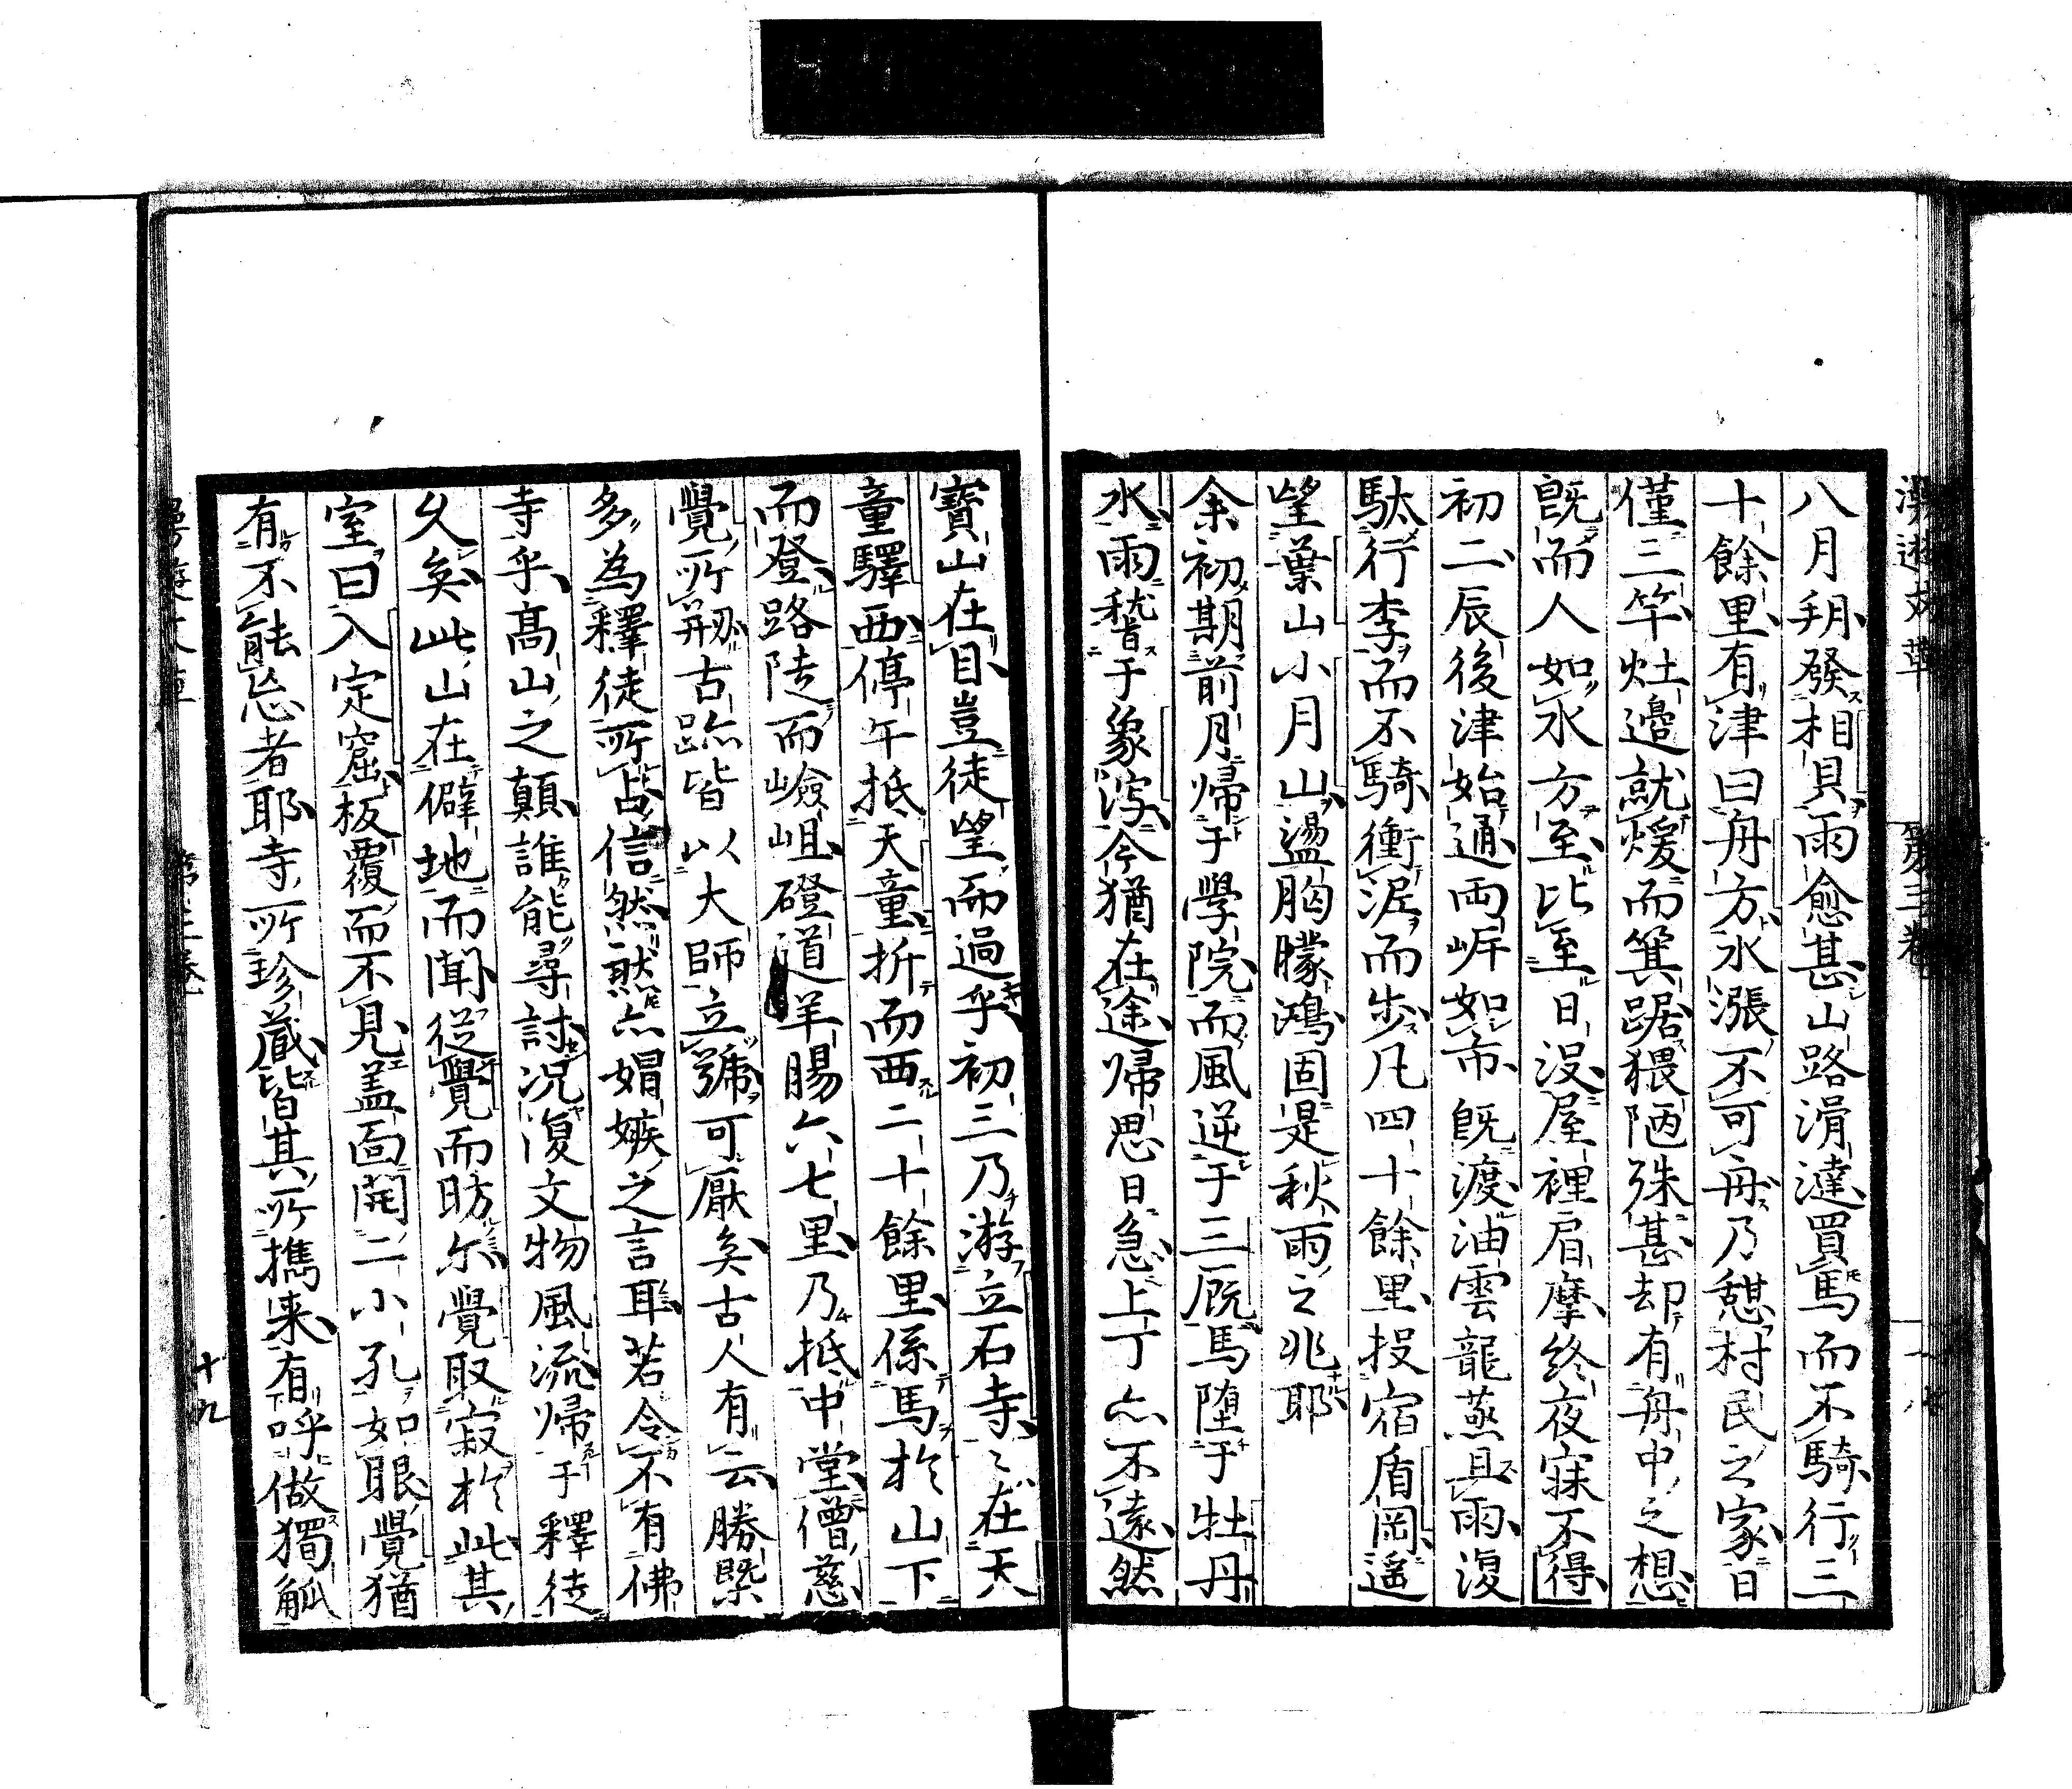 八月朔發相貝雨愈甚山路滑澾買馬而不騎行三
十餘里有津曰舟方水漲不可舟乃憇村民之家日
僅三竿灶邉就煖而箕踞猥陋殊甚却有舟中之想
既而人如水方至比至日没屋裡肩摩終夜寐不得
初二辰後津始通両岸如市既渡油雲龍燕具雨復
馱行李而不騎衝泥而步凡四十餘里投宿盾岡遥
望葉山小月山盪胸朦鴻固是秋雨之兆耶
余初期前月帰于學院而風逆于三厩馬堕于牡丹
水雨稽于象泻今猶在途帰思日急上丁亦不遠然
寳山在目豈徒望而過乎初三乃游立石寺〻在天
童驛西停午抵天童折而西二十餘里係馬於山下
而登路陡而嶮岨磴道羊腸六七里乃抵中堂僧慈
覺所剏古跡皆以大師立號可厭矣古人有云勝槩
多為釋徒所占信然然亦媢嫉之言耳若令不有佛
寺乎髙山之顛誰能尋討况復文物風流帰于釋徒
久矣此山在僻地而聞從覺而昉尓覺取寂於此其
室曰入定窟板覆而不見盖面開二小孔如眼覺猶
有不能忘者耶寺所珍蔵皆其所携来有呼做獨觚
第三卷
十九